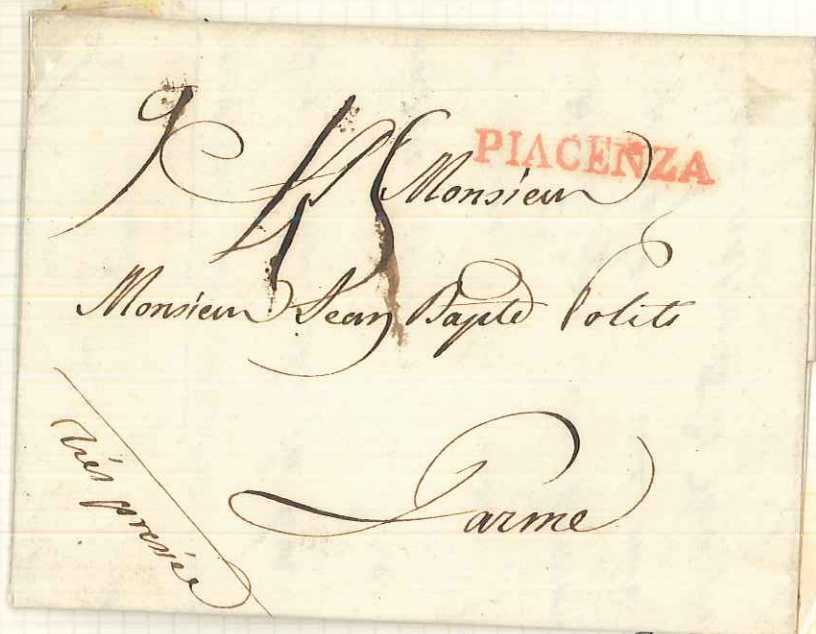 PIACENZA
Monsieur
Monsieur Jean Bapte Polits
Parme
très pressée